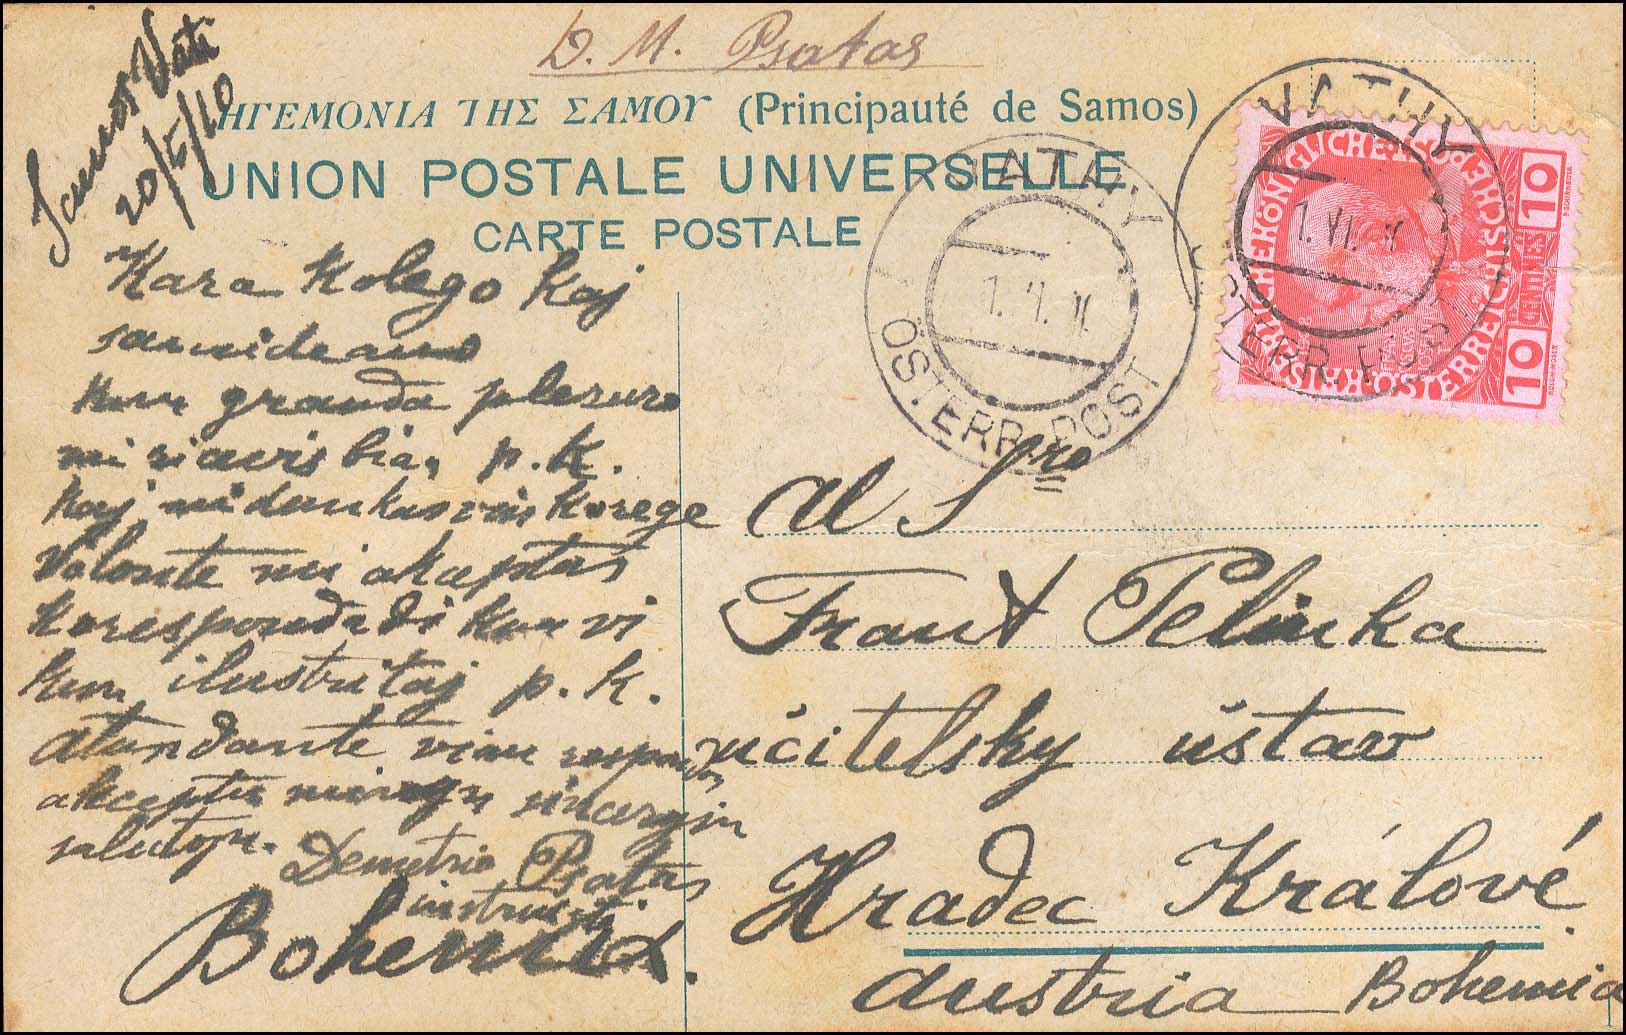 D. M. Psatas
Samos Vati
20/5/10
ΗΓΕΜΟΝΙΑ ΤΗΣ ΣΑΜΟΥ (Principauté de Samos)
UNION POSTALE UNIVERSELLE
CARTE POSTALE
Kara kolego kaj
samideano
kun granda plezuro
mi ricevis vian p.k.
kaj mi dankas vin korege
Volonte mi akceptas
korespondadi kun vi
kun ilustritaj p. k.
atendante vian respondon
akceptu miajn sincerajn
salutojn.
Demetrio Psatas
Bohemia.
VATHY
1. VI.
ÖSTERR. POST
VATHY
1. VI.
ÖSTERR. POST
KAISERLICHE KÖNIGLICHE ÖSTERREICHISCHE POST
10 CENTIMES 10
al Sro
Frant Pelinka
učitelsky ústav
Hradec Králové.
Austria Bohemia